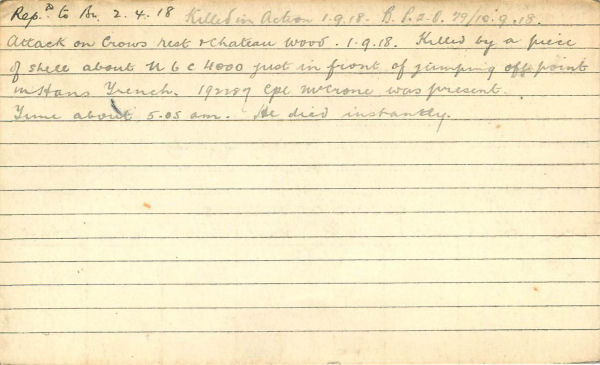 Rep.d to Bn. 2.4.18 Killed in Action 1.9.18. B.P.2.O. 29/10.9.18.
Attack on Crows rest & Chateau Wood. 1.9.18. Killed by a piece
of shell about U 6 c 4000 just in front of jumping off point
in Hans Trench. 192287 Cpl McCrone was present.
Time about 5.05 am. He died instantly.